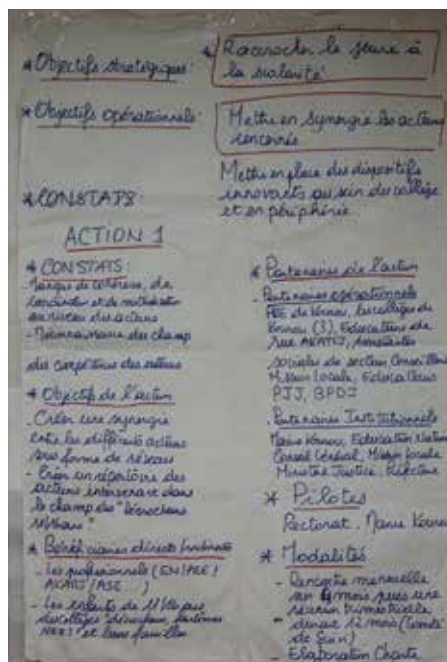 * Objectifs stratégiques:
* Raccrocher le jeune à
la scolarité
* Objectifs opérationnels:
Mettre en synergie les acteurs
concernés
Mettre en place des dispositifs
innovants au sein des collèges
et en périphérie
* CONSTATS:
ACTION 1
* CONSTATS:
Manque de cohérence, de
coordination et de
au niveau des acteurs
- Méconnaissance des champs
des compétences des acteurs
* Objectif de l'action
- Créer une synergie
entre les différents acteurs
sous forme de réseau
- Créer un répertoire des
acteurs intervenant dans
le champ des "décrocheurs
* Bénéficiaires directs
- Les professionnels (EN/PEE/
AKATIJ/ASE...)
- Les enfants de
des collèges
et leurs familles
* Partenaires de l'action
- Partenaires opérationnels
PEE de Kourou, les collèges de
Kourou (3), Educateurs de
rue AKATIJ, Assistantes
sociales de secteur, Conseillers
Mission Locale, Educateurs
PJJ, BPDJ
- Partenaires Institutionnels
Mairie Kourou, Education Nation
Conseil Général, Mission Locale
Ministère Justice,
* Pilotes
Rectorat. Mairie Kourou
* Modalités
- Rencontre mensuelle
sur 4 mois puis une
réunion trimestrielle
durant 12 mois (Comité
de Suivi)
- Elaboration Charte